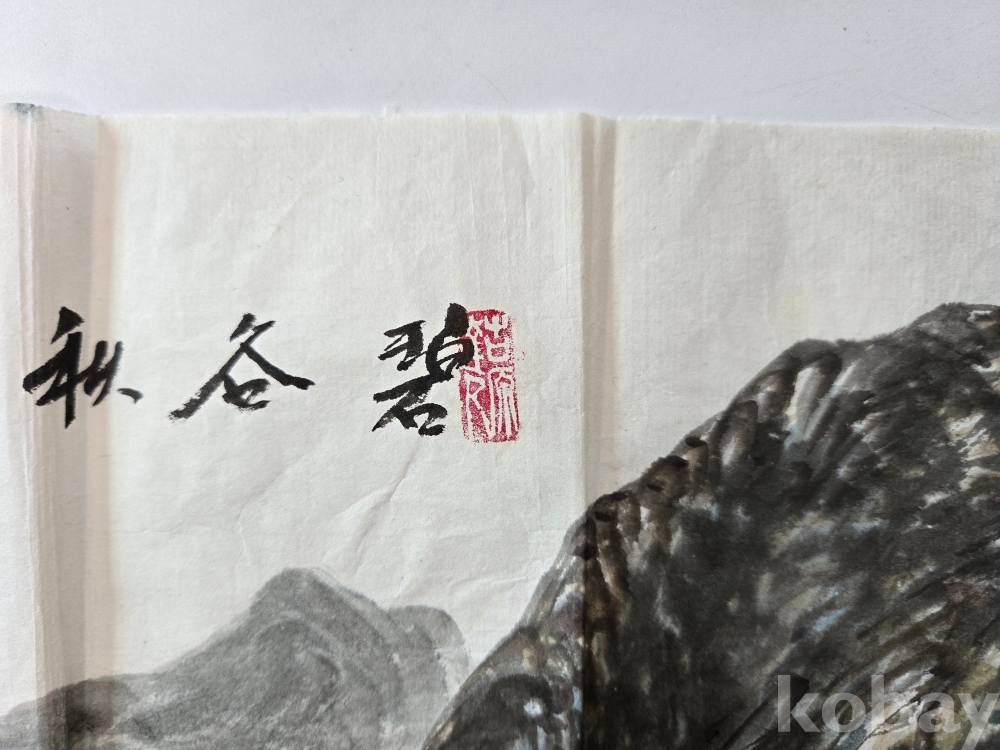 碧谷秋
kobay